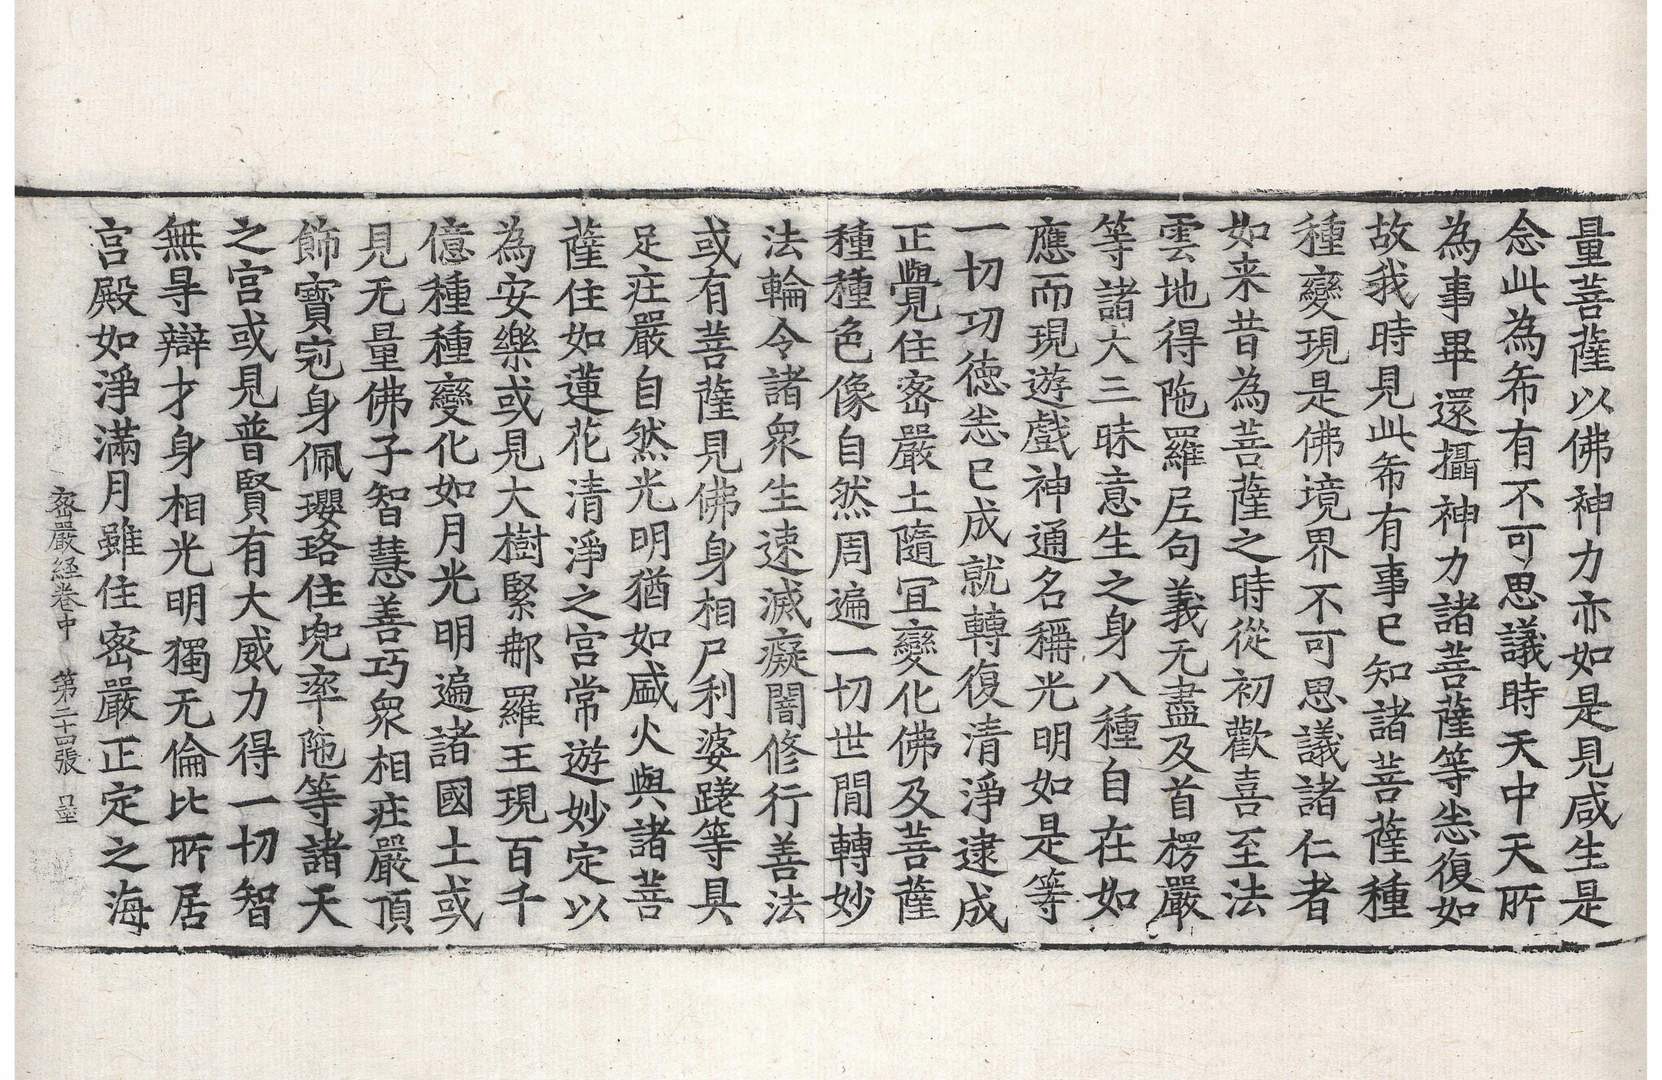 量菩薩以佛神力亦如是見咸生是
念此為希有不可思議時天中天所
為事畢還攝神力諸菩薩等悉復如
故我時見此希有事已知諸菩薩種
種變現是佛境界不可思議諸仁者
如来昔為菩薩之時從初歡喜至法
雲地得陁羅尼句義无盡及首楞嚴
等諸大三昧意生之身八種自在如
應而現遊戲神通名稱光明如是等
一切功徳悉已成就轉復清淨逮成
正覺住密嚴土隨冝變化佛及菩薩
種種色像自然周遍一切世閒轉妙
法輪令諸衆生速滅癡闇修行善法
或有菩薩見佛身相尸利婆蹉等具
足莊嚴自然光明猶如盛火與諸菩
薩住如蓮花清淨之宫常遊妙定以
為安樂或見大樹緊𨚗羅王現百千
億種種變化如月光明遍諸國土或
見无量佛子智慧善巧衆相莊嚴頂
飾寶冠身佩瓔珞住兜率陁等諸天
之宫或見普賢有大威力得一切智
無㝵辯才身相光明獨无倫比所居
宫殿如淨滿月雖住密嚴正定之海
密嚴経卷中 第二十四張 口墨